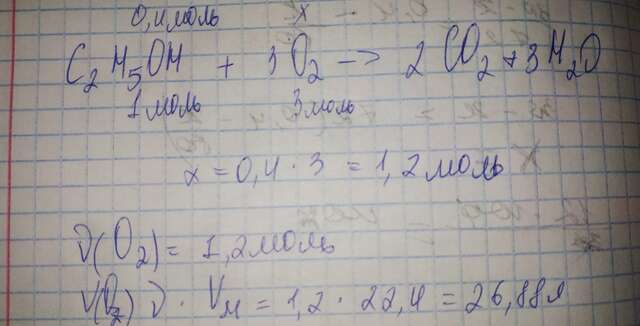 0,4 моль x
C₂H₅OH + 3O₂ → 2CO₂ + 3H₂O
1 моль 3 моль
x = 0,4 · 3 = 1,2 моль
ν(O₂) = 1,2 моль
V(O₂) ν · Vм = 1,2 · 22,4 = 26,88 л